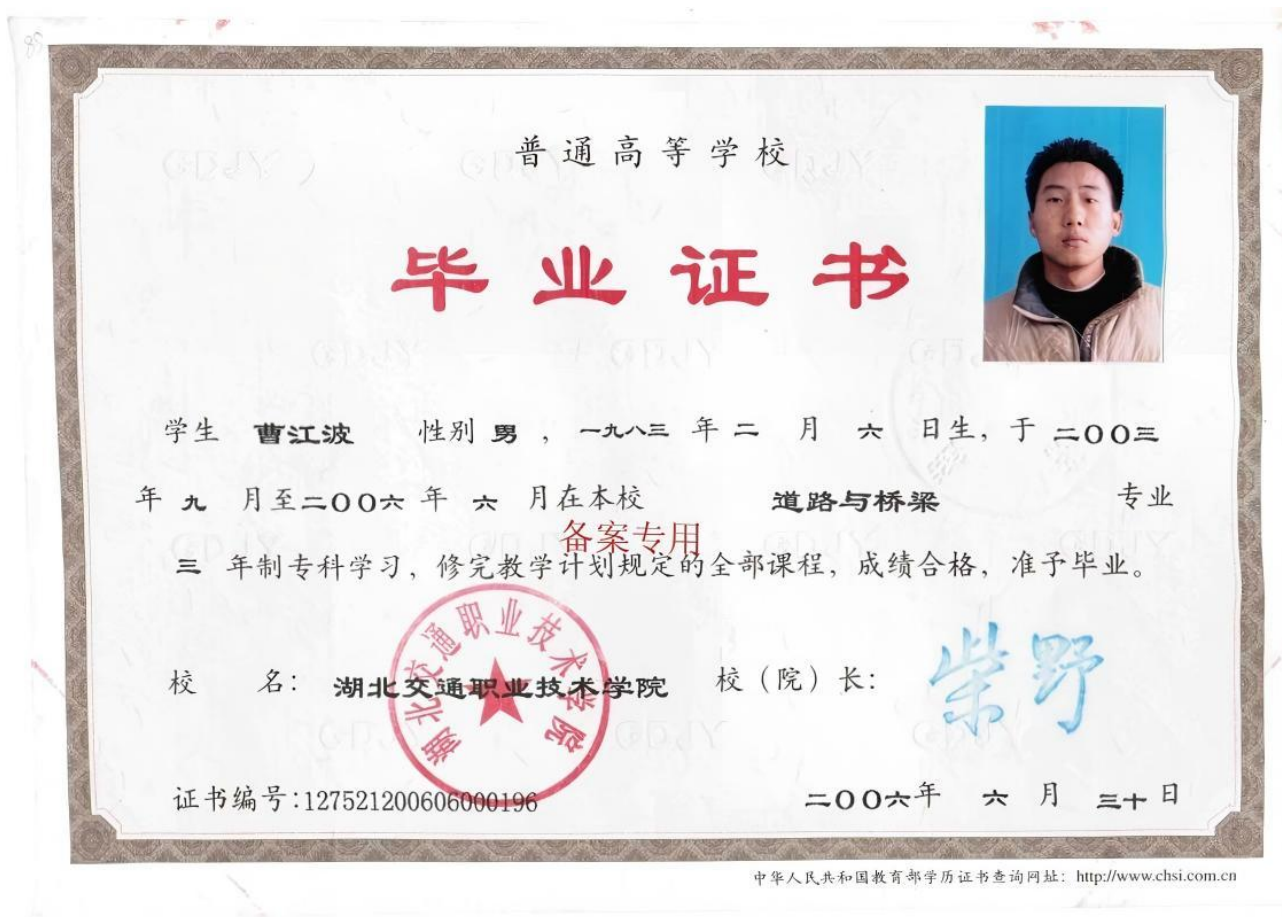 85
普通高等学校
毕业证书
学生 曹江波 性别 男 ，一九八三 年 二 月 六 日生，于 二〇〇三
年 九 月至二〇〇六 年 六 月在本校 道路与桥梁 专业
备案专用
三 年制专科学习，修完教学计划规定的全部课程，成绩合格，准予毕业。
湖北交通职业技术学院
校 名：湖北交通职业技术学院 校（院）长：柴野
证书编号：127521200606000196 二〇〇六年 六 月 三十 日
中华人民共和国教育部学历证书查询网址：http://www.chsi.com.cn